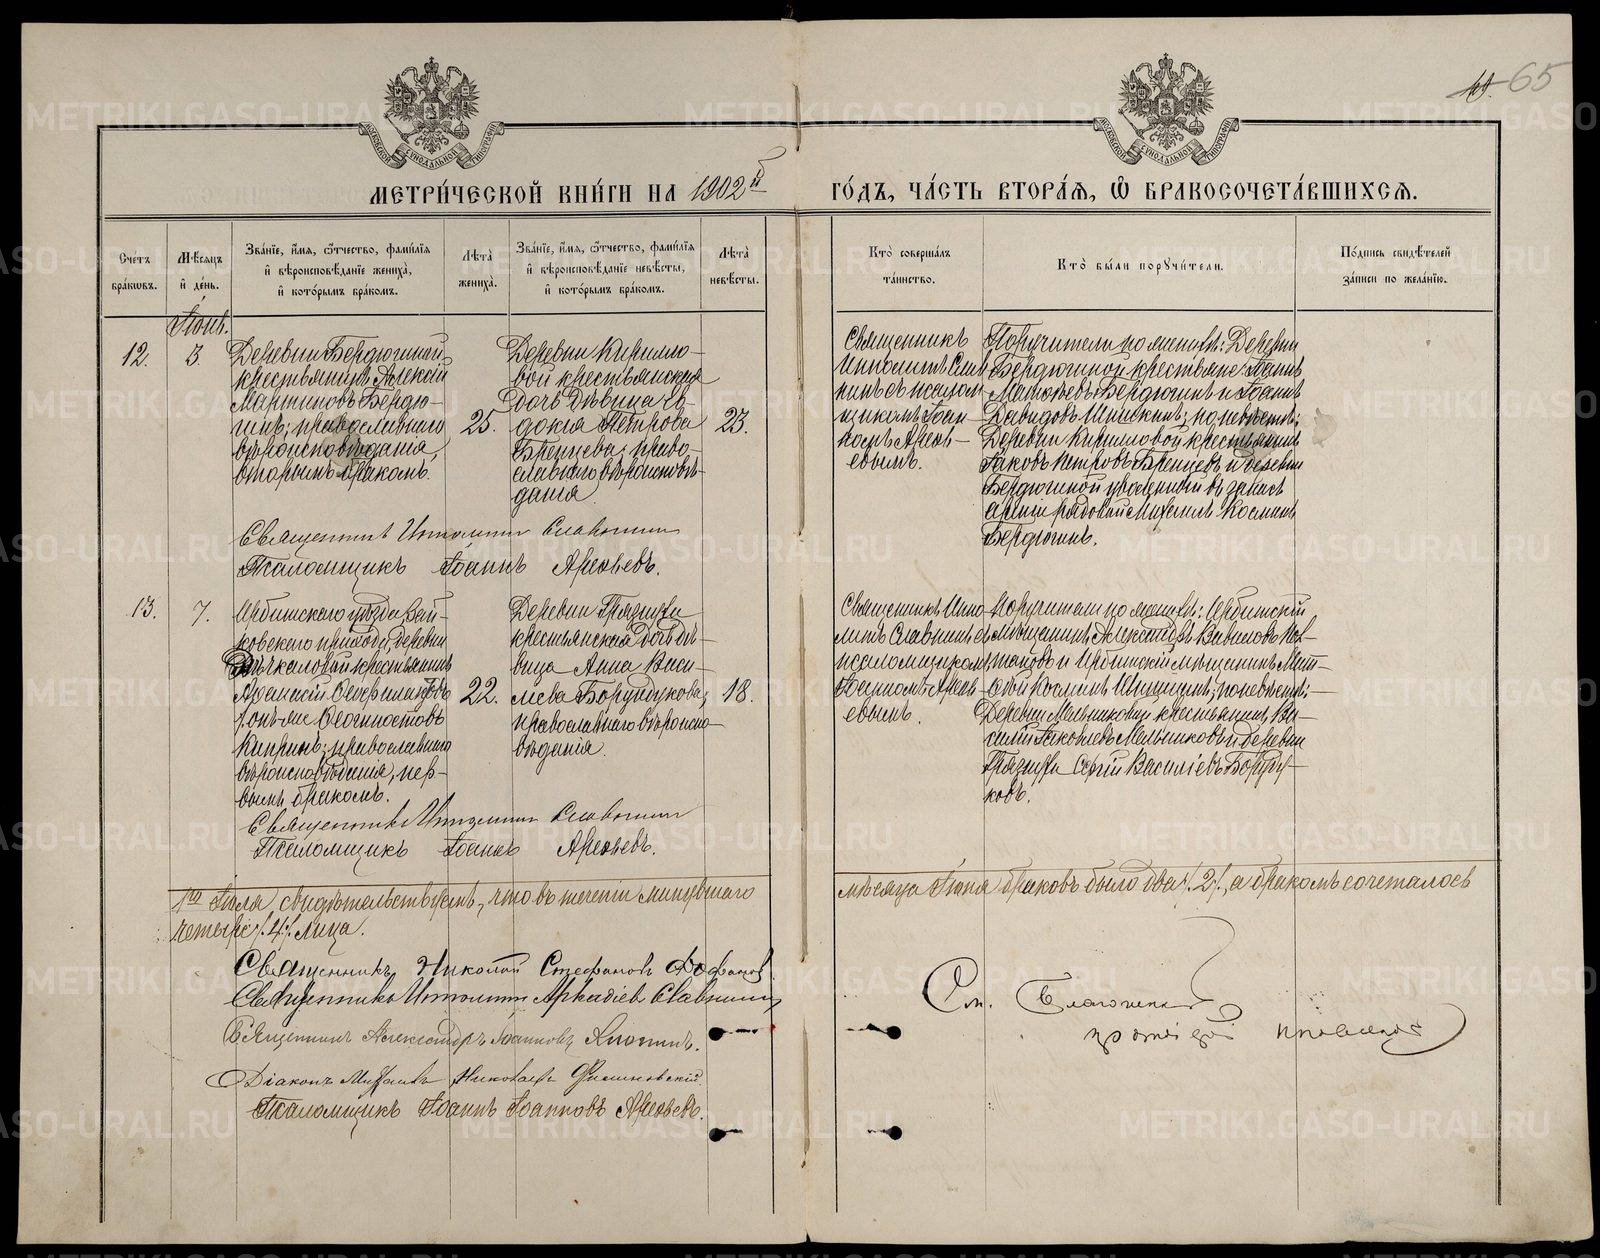 65
МЕТРИ́ЧЕСКОЙ КНИ́ГИ НА 1902й ГО́ДЪ, ЧА́СТЬ ВТОРА́Я, Ѿ БРАКОСОЧЕТА́ВШИХСЯ.
Сче́тъ бра́кѡвъ.
Мѣ́сяцъ и҆ де́нь.
Зва́нїе, и҆́мя, ѻ҆́тчество, фами́лїя и҆ вѣроисповѣ́данїе жениха́, и҆ кото́рымъ бра́комъ.
Лѣта̀ жениха̀.
Зва́нїе, и҆́мя, ѻ҆́тчество, фами́лїя и҆ вѣроисповѣ́данїе невѣ́сты, и҆ кото́рымъ бра́комъ.
Лѣта̀ невѣ́сты.
Кто̀ соверша́лъ та́инство.
Кто̀ бы́ли порꙋчи́тели.
По́дпись свидѣ́телей за́писи по жела́нїю.
Іюнь.
12.
3.
Деревни Бердюгиной
крестьянинъ Алексѣй
Мартиновъ Бердю-
гинъ; православнаго
вѣроисповѣданія,
вторымъ бракомъ.
25.
Деревни Кирилло-
вой крестьянская
дочь дѣвица Ев-
докія Петрова
Бренцева; право-
славнаго вѣроисповѣ-
данія
23.
Священникъ
Ипполитъ Слав
нинъ съ псалом
щикомъ Іоан
номъ Арефь-
евымъ.
Поручители по женихѣ: Деревни
Бердюгиной крестьяне: Іоаннъ
Матѳеевъ Бердюгинъ и Іоаннъ
Давидовъ Шишкинъ; по невѣстѣ:
Деревни Кирилловой крестьянинъ
Іаковъ Петровъ Бренцевъ и деревни
Бердюгиной уволенный въ запасъ
арміи рядовой Михаилъ Косминъ
Бердюгинъ.
Священникъ Ипполитъ Славнинъ
Псаломщикъ Іоаннъ Арефьевъ.
13.
7.
Ирбитскаго уѣзда, Зай-
ковскаго прихода, деревни
крестьянинъ
Аѳанасій
Ѳеогностовъ
Кипринъ; православнаго
вѣроисповѣданія, пер-
вымъ бракомъ.
22.
Деревни Грязнухи
крестьянская дочь дѣ-
вица Анна Васи-
льева Борундукова;
православнаго вѣроиспо-
вѣданія.
18.
Священникъ Иппо
литъ Славнинъ съ
псаломщикомъ
Іоанномъ Арефь-
евымъ.
Поручители по женихѣ: Ирбитскій
мѣщанинъ Александръ Вавиловъ
и Ирбитскій мѣщанинъ Мат-
ѳей Косминъ; по невѣстѣ:
Деревни Мельниковой крестьянинъ Ва-
силій Іаковлевъ Мельниковъ и деревни
Грязнухи Сергій Васильевъ Борунду-
ковъ.
Священникъ Ипполитъ Славнинъ
Псаломщикъ Іоаннъ Арефьевъ.
1го Іюля свидѣтельствуемъ, что въ теченіи минувшаго мѣсяца Іюня браковъ было два /.2/., а бракомъ сочеталось
четыре /.4/. лица.
Священникъ Николай Стефановъ
Священникъ Ипполитъ Аркадіевъ Славнинъ
Священникъ Александръ Іоанновъ
Діаконъ Михаилъ Николаевъ
Псаломщикъ Іоаннъ Іоанновъ Арефьевъ.
См. Благочинный
протоіерей
METRIKI.GASO-URAL.RU